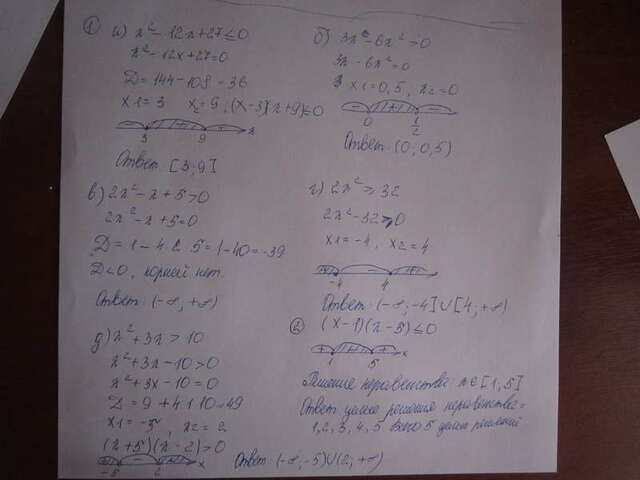 ① а) x² - 12x + 27 ≤ 0
x² - 12x + 27 = 0
D = 144 - 108 = 36
x1 = 3 x₂ = 9; (x-3)(x+9) ≤ 0
3 9 x
Ответ: [3; 9]
б) 3x - 6x² > 0
3x - 6x² = 0
x1 = 0,5, x2 = 0
0 1/2
Ответ: (0; 0,5)
в) 2x² - x + 5 > 0
2x² - x + 5 = 0
D = 1 - 4·2·5 = 1 - 40 = -39
D < 0, корней нет.
Ответ: (-∞; +∞)
г) 2x² ≥ 32
2x² - 32 ≥ 0
x1 = -4, x2 = 4
-4 4
Ответ: (-∞; -4] ∪ [4; +∞)
д) x² + 3x > 10
x² + 3x - 10 > 0
x² + 3x - 10 = 0
D = 9 + 4·1·10 = 49
x1 = -5, x2 = 2
(x+5)(x-2) > 0
-5 2 x
Ответ: (-∞; -5) ∪ (2; +∞)
② (x-1)(x-5) ≤ 0
1 5 x
Решение неравенства x ∈ [1; 5]
Ответ целые решения неравенства =
1, 2, 3, 4, 5 всего 5 целых решений